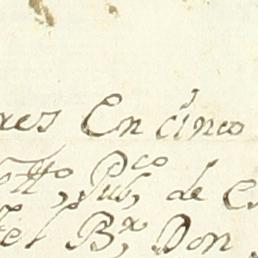 res En cinco
tto, Pub,co de C
tel Br, Don